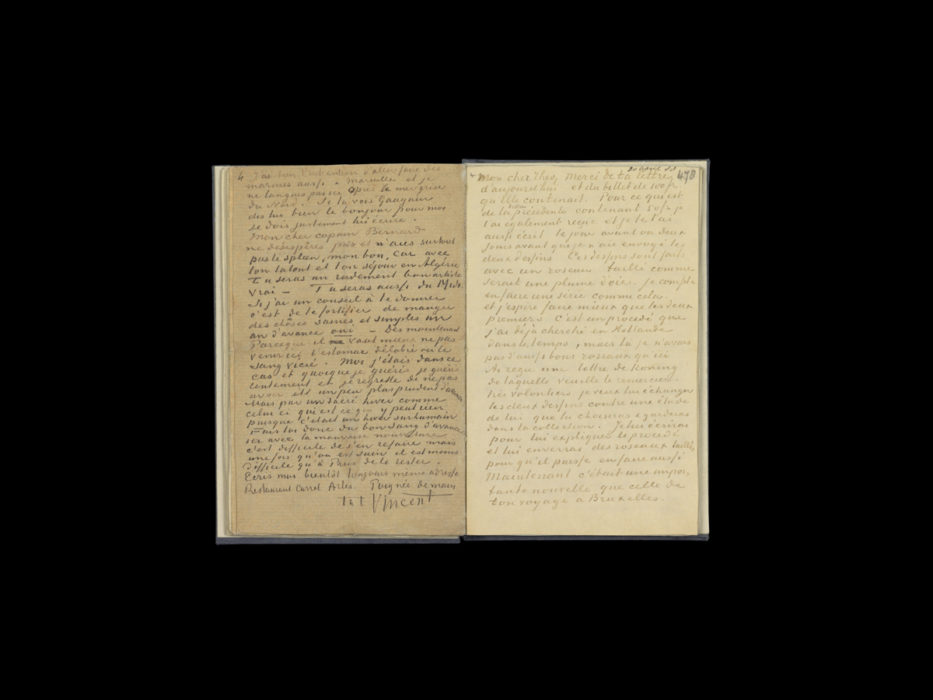 4 J'ai bien l'intention d'aller faire des
marines aussi à Marseille et je
ne languis pas ici après la mer grise
du Nord. Si tu vois Gauguin
dis lui bien le bonjour pour moi
je dois justement lui écrire.
Mon cher copain Bernard
ne désespères pas et n'aies surtout
pas le spleen, mon bon, car avec
ton talent et ton séjour en Algérie
tu seras un rudement bon artiste
vrai — Tu seras aussi du Midi.
Si j'ai un conseil à te donner
c'est de te fortifier de manger
des choses saines et simples un
an d'avance oui — Dès maintenant
Parceque il vaut mieux ne pas
venir ici l'estomac délabré et le
sang vicié. Moi j'étais dans ce
cas et quoique je guéris je guéris
lentement et je regrette de ne pas
avoir été un peu plus prudent d'avance
Mais par un sacré hiver comme
celui ci qui est ce qui y peut rien
puisque c'était un hiver surhumain
Fais toi donc du bon sang d'avance
ici avec la mauvaise nourriture
c'est difficile de s'en refaire mais
une fois qu'on est sain il est moins
difficile qu'à Paris de le rester.
Ecris moi bientôt toujours même adresse
Restaurant Carrel Arles. Poignée de main
t. à t. Vincent
478
Mon cher Theo, Merci de ta lettre
d'aujourd'hui et du billet de 100 fr
qu'elle contenait. Pour ce qui est
de la précédente contenant 50 fr je
l'ai également reçue et je te l'ai
aussi écrit le jour avant ou deux
jours avant que je n'aie envoyé les
deux dessins Ces dessins sont faits
avec un roseau taillé comme
serait une plume d'oie. Je compte
en faire une série comme cela.
et j'espère faire mieux que les deux
premiers. C'est un procédé que
j'ai déjà cherché en Hollande
dans le temps, mais là je n'avais
pas d'aussi bons roseaux qu'ici
Ai reçu une lettre de Koning
de laquelle veuille le remercier.
Très volontiers je veux lui échanger
les deux dessins contre une étude
de lui que tu choisiras & garderas
dans la collection. Je lui écrirai
pour lui expliquer le procédé
et lui enverrai des roseaux taillés,
pour qu'il puisse en faire aussi
Maintenant c'était une impor,
tante nouvelle que celle de
ton voyage à Bruxelles.